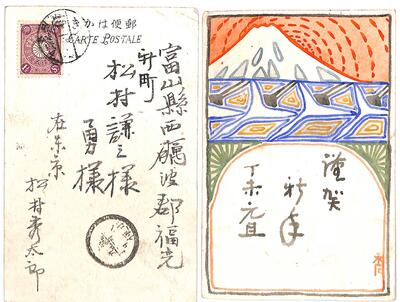 きかは便郵
CARTE POSTALE
富山縣西礪波郡福光
新町
松村謙三様
勇様
在東京
松村秀太郎
謹賀
新年
丁未元旦